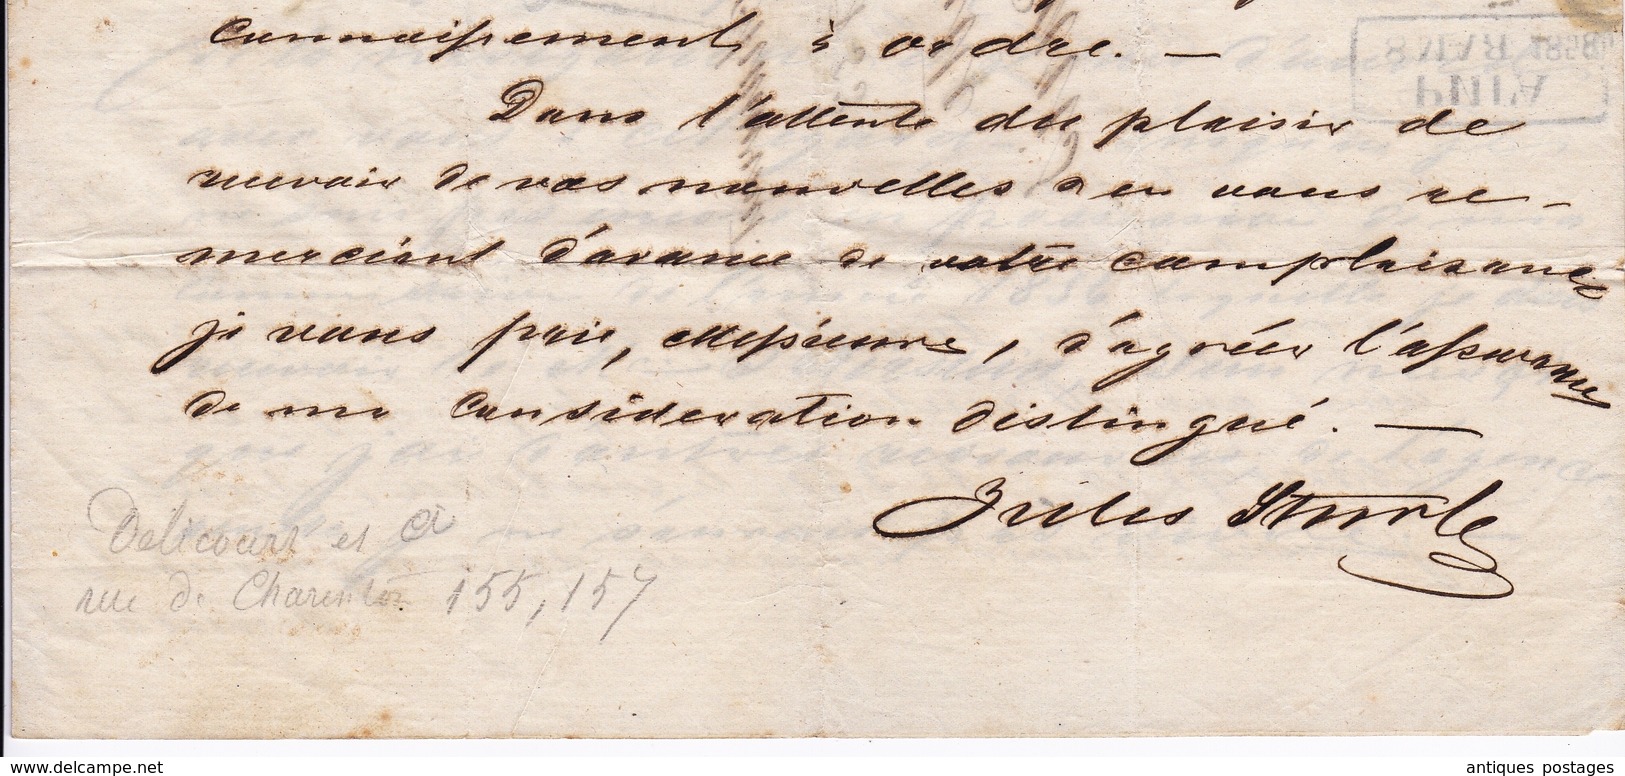 connaissement à ordre. —
Dans l'attente du plaisir de
recevoir de vos nouvelles & en vous re-
merciant d'avance de votre complaisance
je vous prie, Messieurs, d'agréer l'assurance
de ma considération distingué. —
Jules
Délicourt et Cie
rue de Charenton 155, 157
www.delcampe.net
antiques postages